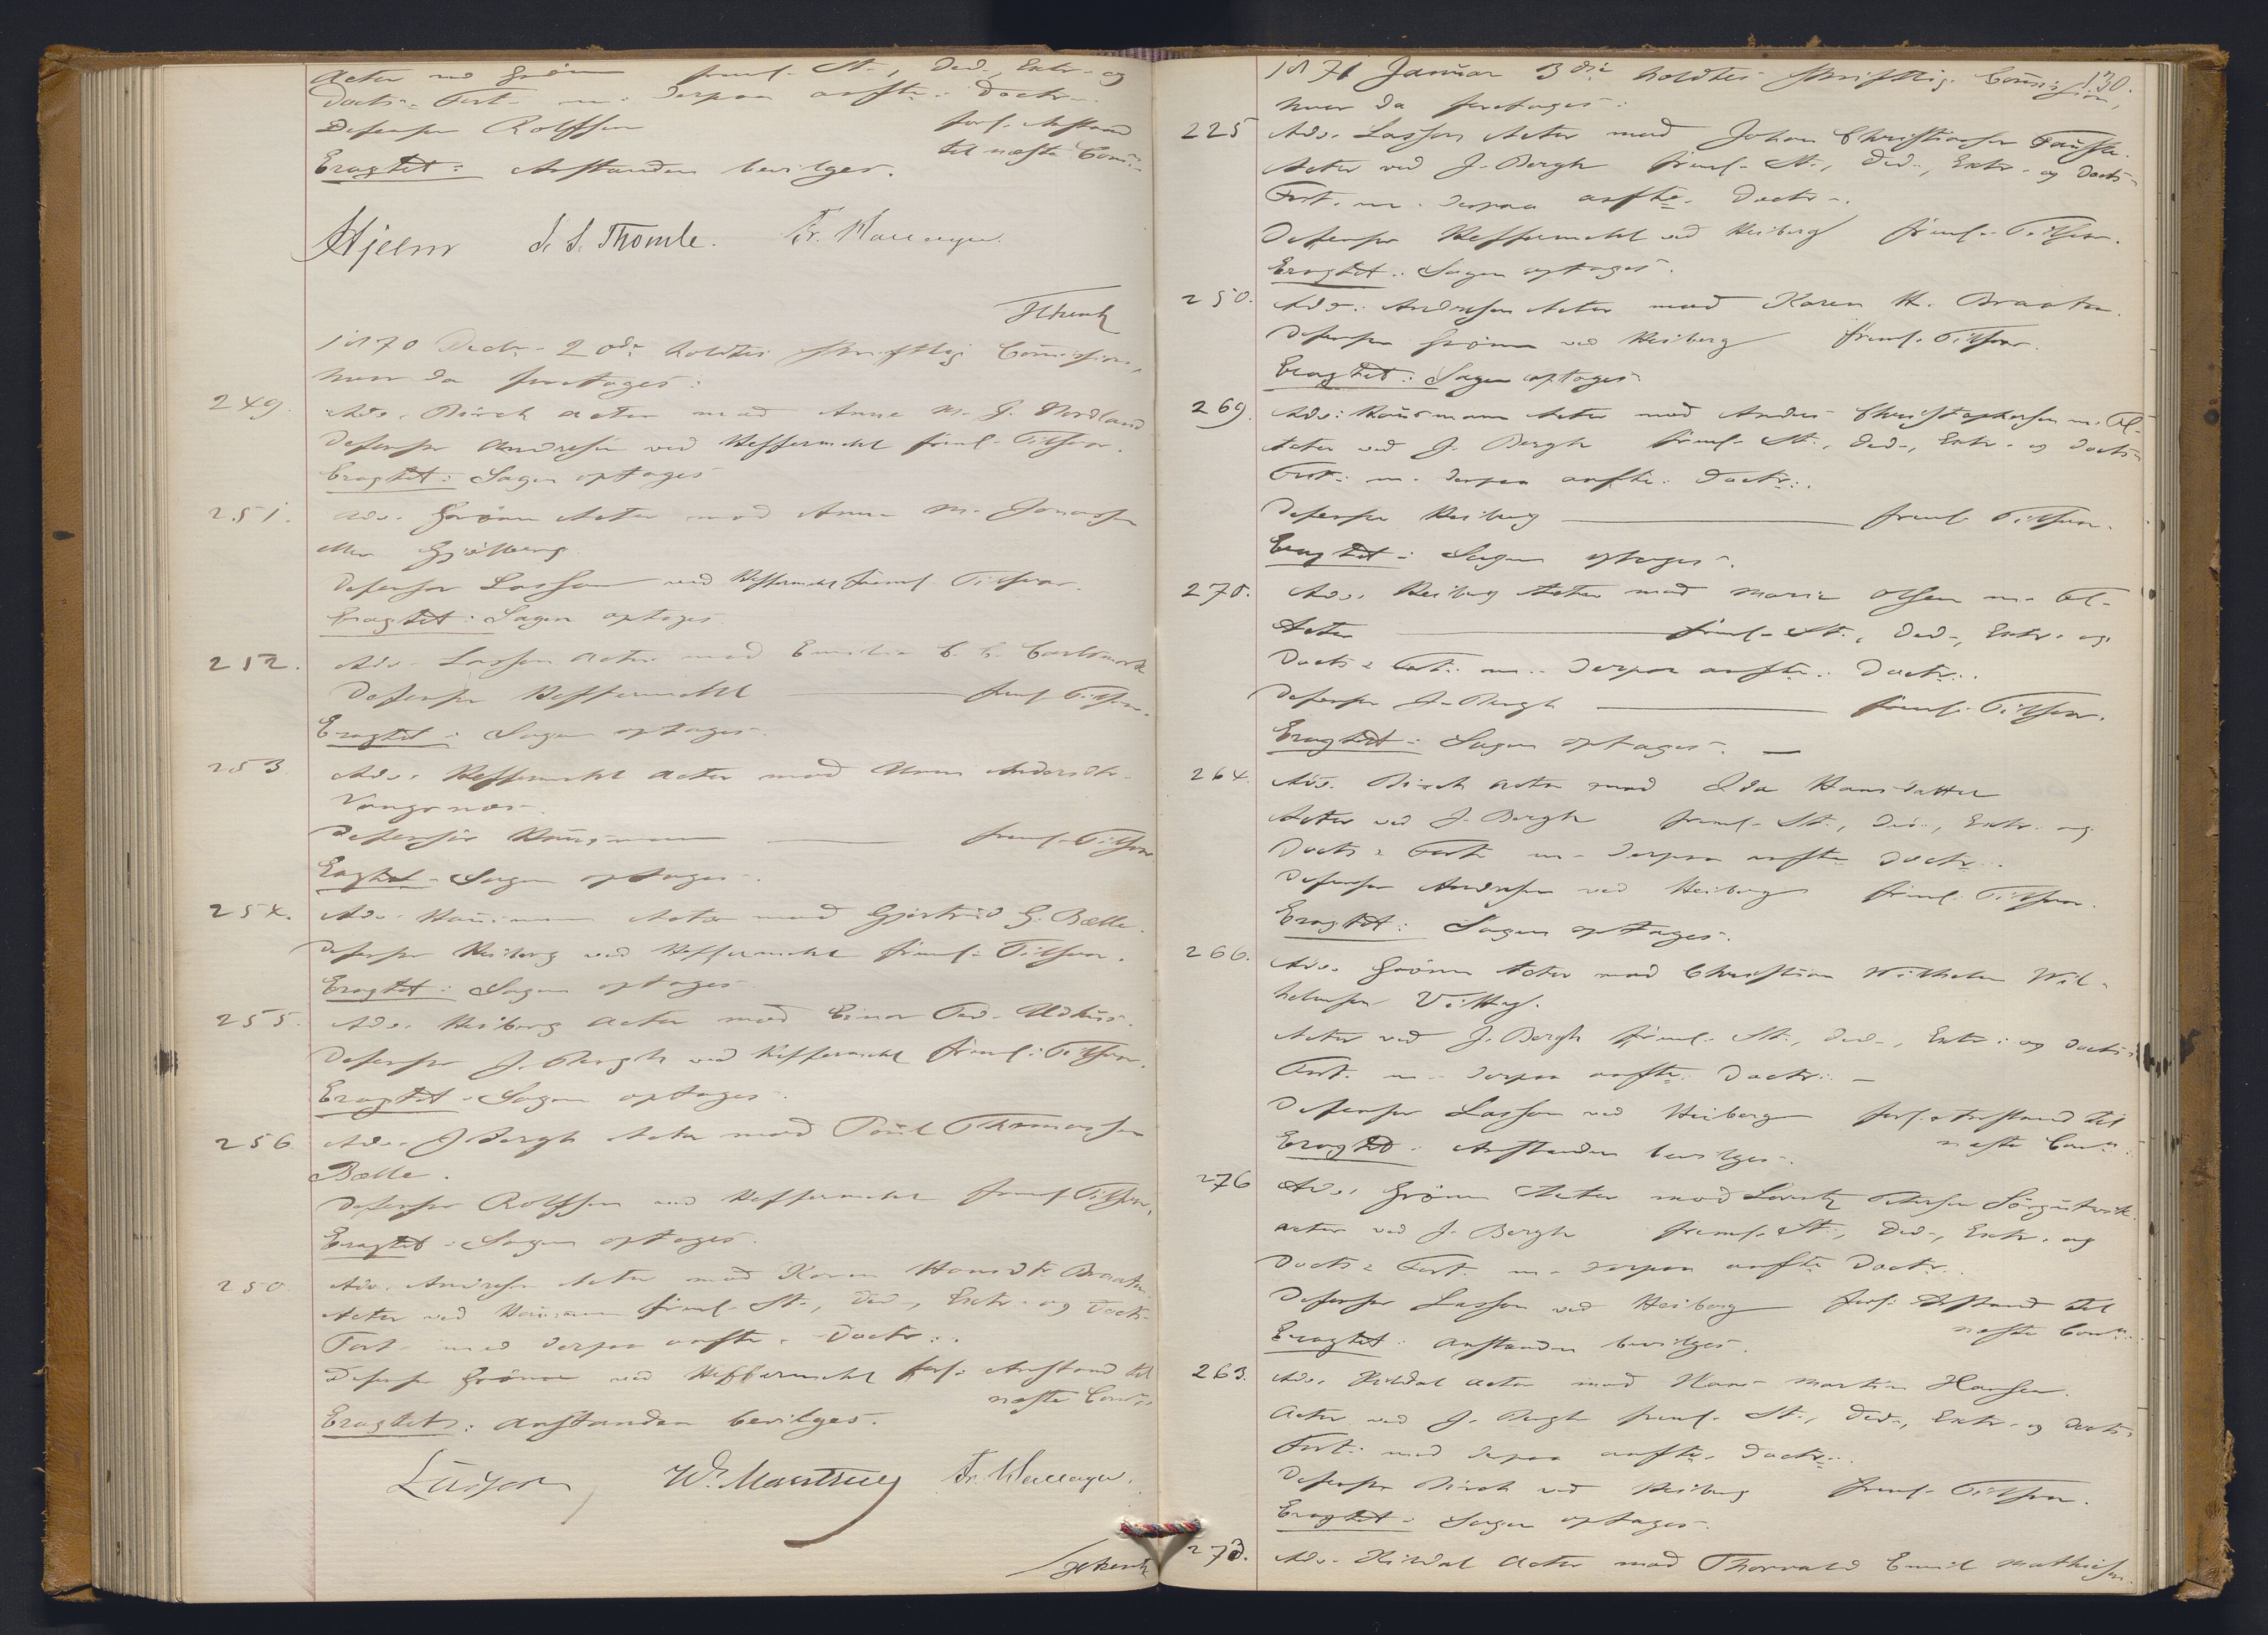 Actor ved Grönn freml. St., Ded-, Extr- og
Docts- Fort- m- derpaa anfte- Doctr-
Defensor Rolfsen forl. Anstand
til næste Comm:
Eragtet: Anstanden bevilges.
Hjelm S. S. Thomle. Fr. Hallager.
1870 Decbr- 20de holdtes skriftlig Commission,
hvor da foretages:
249. Adv. Birch Actor mod Anne M. J. Nordland
Defensor Andresen ved Heffermehl freml- Tilsvar.
Eragtet: Sagen optages
251. Adv. Grönn Actor mod Anne M. Jonassen
eller
Defensor Lasson ved Heffermehl freml Tilsvar.
Eragtet: Sagen optages.
252. Adv. Lasson Actor mod Emilie C. C.
Defensor Heffermehl freml Tilsvar.
Eragtet: Sagen optages.
253. Adv. Heffermehl Actor mod Andersdtr
Vangsnæs.
Defensor Hausmann freml. Tilsvar
Eragtet- Sagen optages-.
254. Adv. Hausmann Actor mod Gjertrud G. Bælle.
Defensor Heiberg ved Heffermehl freml- Tilsvar.
Eragtet: Sagen optages
255. Adv. Heiberg Actor mod Einar Ted- Udhus.
Defensor J. Bergh ved Heffermehl freml: Tilsvar.
Eragtet- Sagen optages.
256 Adv. J Bergh Actor mod Poul Thomassen
Bælle.
Defensor Rolfsen ved Heffermehl freml Tilsvar.
Eragtet: Sagen optages.
250. Adv. Andresen Actor mod Karen Hansdtr Braaten.
Actor ved Hausmann freml- St-, Ded-, Extr- og Docts-
Fort- med derpaa anfte- Doctr:.
Defensor Grönn ved Heffermehl forl: Anstand til
næste Comm:
Eragtet: Anstanden bevilges.
Lasson W. Fr. Hallager.
130.
1871 Januar 3die holdtes skriftlig Commission,
hvor da foretages:
225 Adv. Lasson Actor mod Johan Christiansen
Actor ved J. Bergh freml- St., Ded-, Extr- og Docts-
Fort. m- derpaa anfte- Doctr-.
Defensor Heffermehl ved Heiberg freml- Tilsvar.
Eragtet: Sagen optages.
250. Adv. Andresen Actor mod Karen H. Braaten.
Defensor Grönn ved Heiberg freml. Tilsvar.
Eragtet: Sagen optages
269. Adv: Hausmann Actor mod Anders Christophersen m. Fl-
Actor ved J. Bergh freml- St., Ded-, Extr- og Docts-
Fort: m- derpaa anfte: Doctr:.
Defensor Heiberg freml. Tilsvar.
Eragtet: Sagen optages-.
275. Adv. Heiberg Actor mod Marie Olsen m. Fl-
Actor freml- St., Ded-, Extr- og
Docts- Fort: m- derpaa anfte- Doctr:.
Defensor J. Bergh freml- Tilsvar.
Eragtet: Sagen optages.
264. Adv. Birch Actor mod Ida Hansdatter
Actor ved J. Bergh freml- St., Ded-, Extr- og
Docts- Fort m- derpaa anfte Doctr-
Defensor Andresen ved Heiberg freml- Tilsvar.
Eragtet: Sagen optages.
266. Adv. Grönn Actor mod Christian Wilhelm Wil-
helmsen
Actor ved J. Bergh freml- St., Ded-, Extr: og Docts-
Fort. m- derpaa anfte: Doctr:-
Defensor Lasson ved Heiberg forl. Anstand til
næste Comm:
Eragtet: Anstanden bevilges-.
276 Adv. Grönn Actor mod Lorentz Petersen
Actor ved J. Bergh freml- St., Ded-, Extr- og
Docts- Fort. m- derpaa anfte Doctr.
Defensor Lasson ved Heiberg forl: Anstand til
næste Comm:
Eragtet: Anstanden bevilges.
263. Adv. Hildal Actor mod Hans Martin Hansen.
Actor ved J. Bergh freml- St., Ded-, Extr- og Docts-
Fort: med derpaa anfte- Doctr:.
Defensor Birch ved Heiberg freml- Tilsvar.
Eragtet: Sagen optages.
273. Adv. Hildal Actor mod Thorvald Emil Mathiesen.